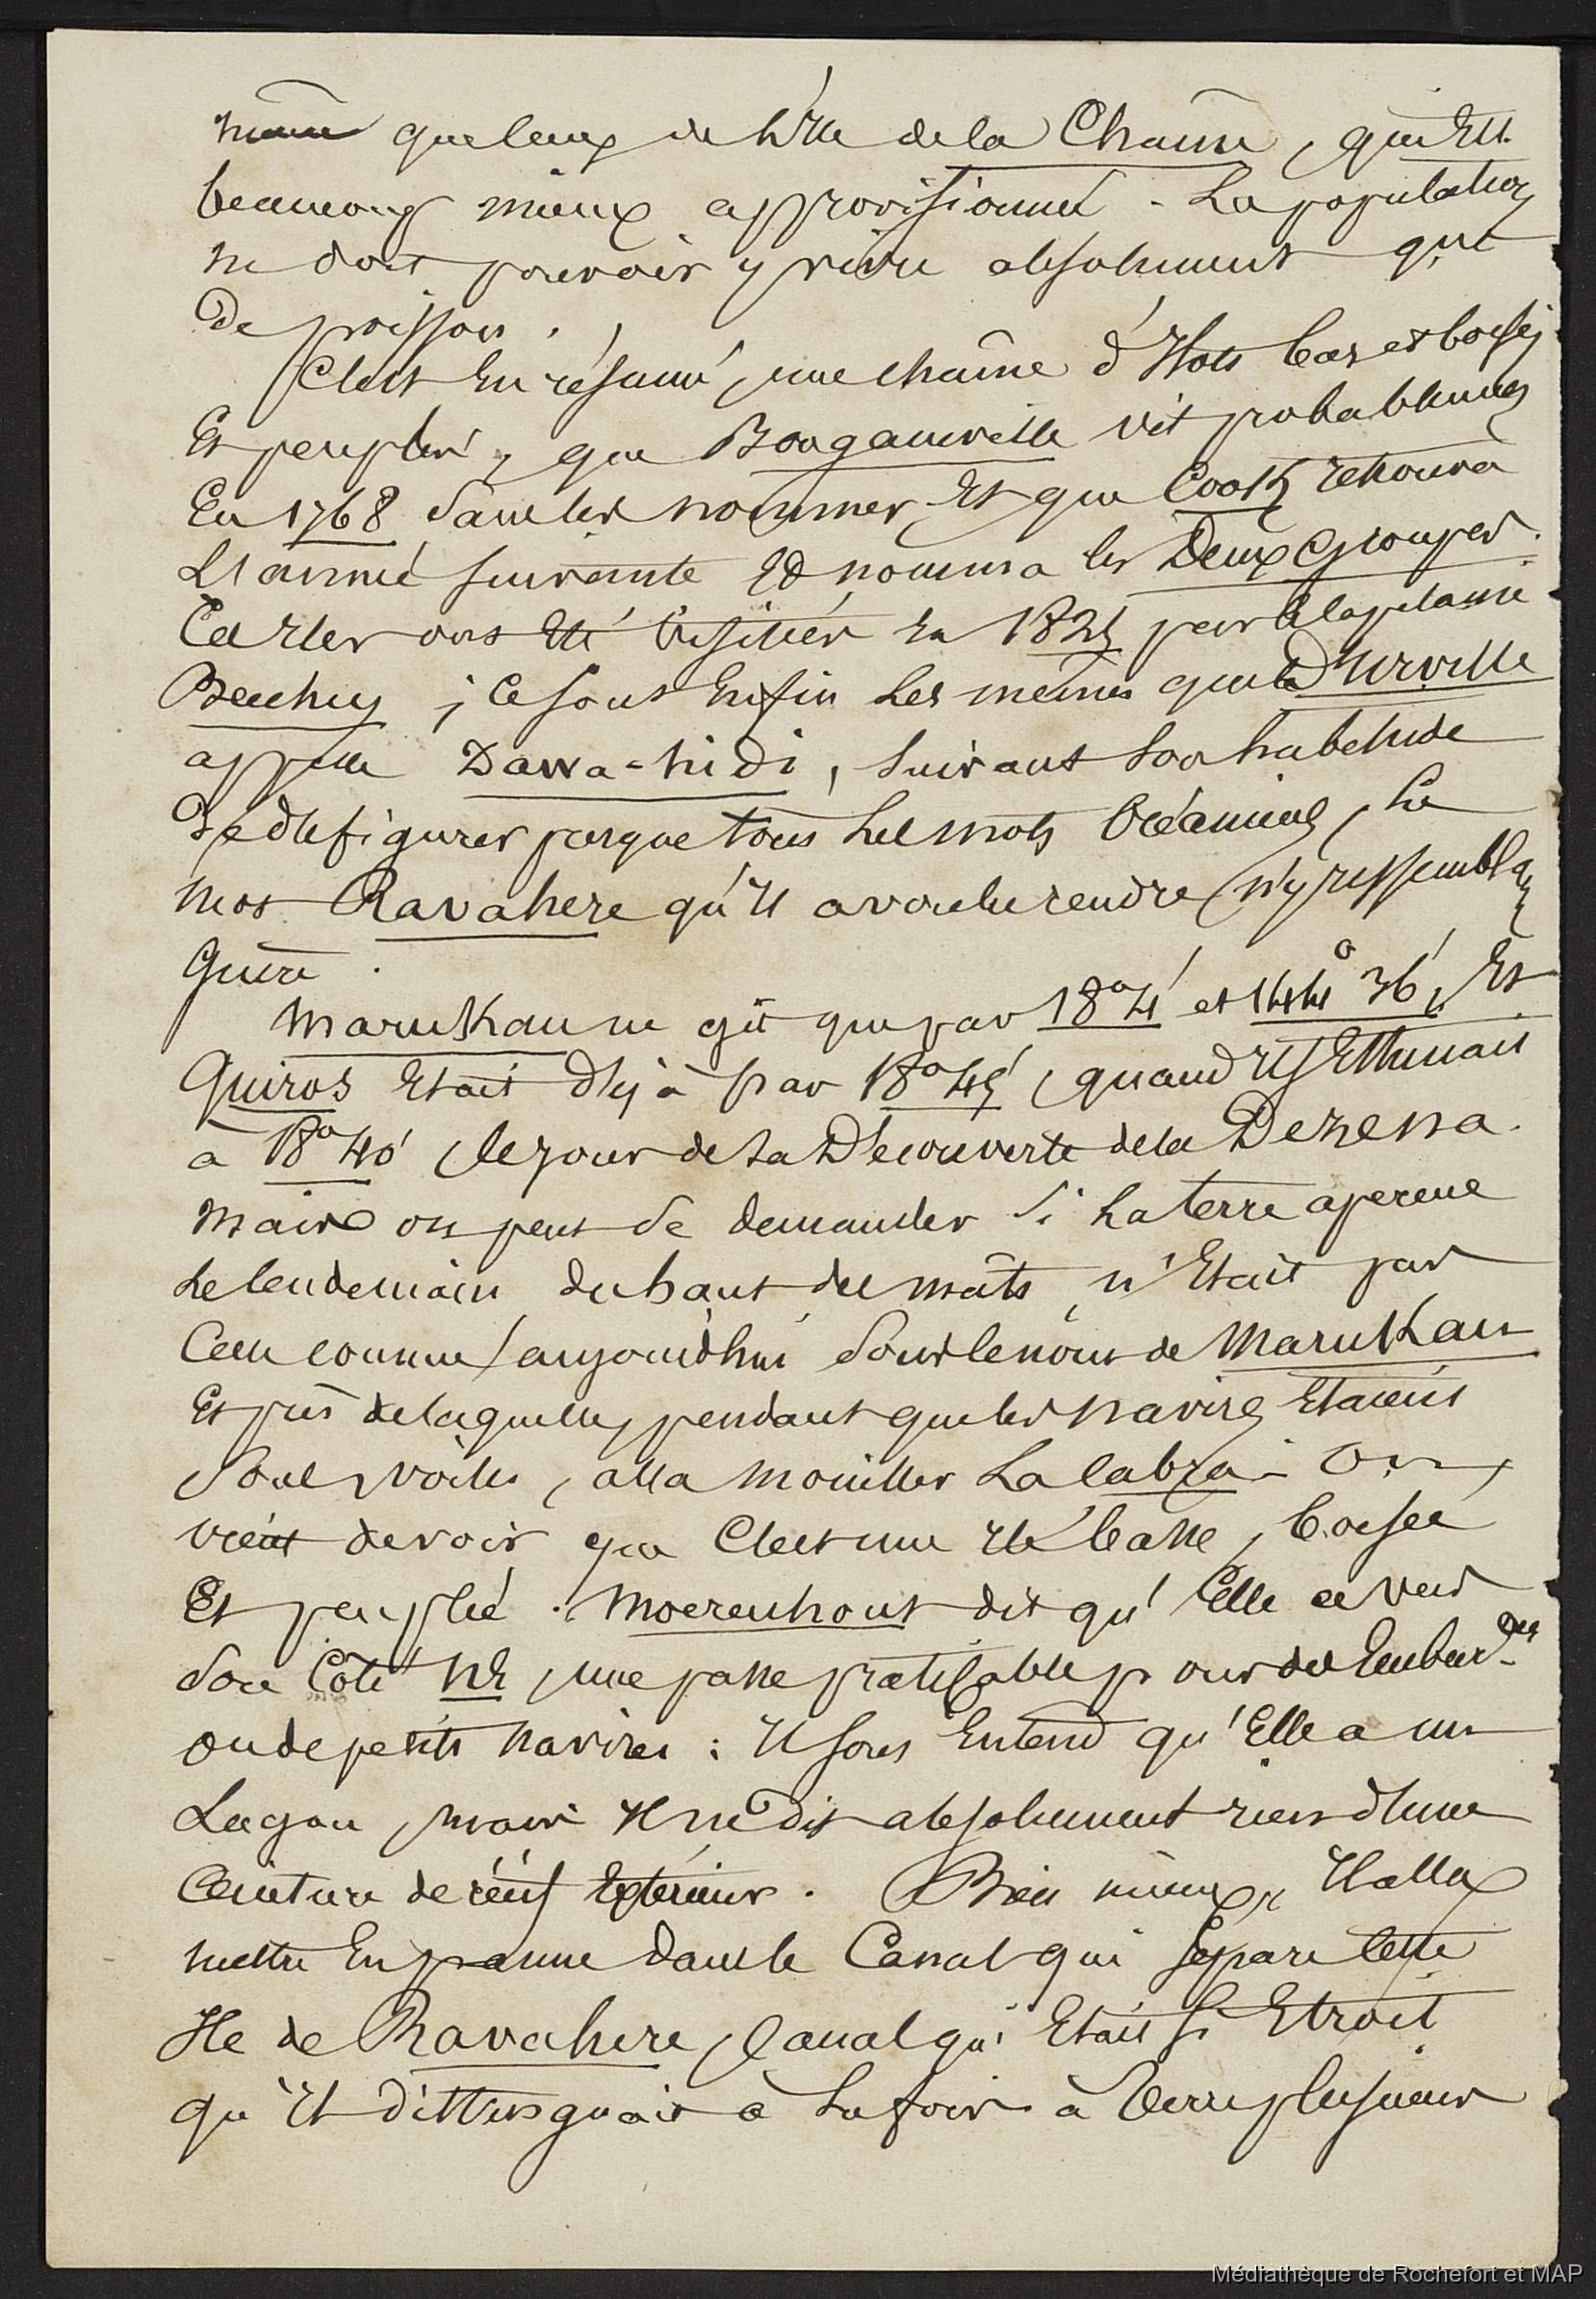 même que ceux de l'île de la Chaîne, qui est
beaucoup mieux approvisionné. La population
ne doit pouvoir y vivre absolument que
de poisson.
C'est en résumé, une chaîne d'Ilots bas et boisés
Et peuplés, que Bougainville vit probablement
En 1768 sans les nommer Et que Cook retrouva
L'année suivante Et nomma les Deux Groupes.
Celles ont été visitées en 1826 par le capitaine
Beechey ; ce sont Enfin les mêmes que D'Urville
appelle Dawa-hidi, suivant son habitude
de défigurer presque tous les mots Océaniens, le
mot Ravahere qu'il a voulu rendre n'y ressemblant
Guère.
Marutkau ne gît que par 18° 4' et 144° 36', Et
Quiros Etait déjà par 18° 45', quand Il s'Estimait
à 18° 40', le jour de la Découverte de la Dezena.
Mais on peut se demander si la terre aperçue
Le lendemain du haut des mâts, n'Etait pas
Celle connue aujourd'hui sous le nom de Marutkau
Et près de laquelle, pendant que les navires Etaient
Sous voiles, alla mouiller La Zabra. On
vient de voir que C'est une Ile basse, boisée
Et peuplée. Moerenhout dit qu'Elle a vers
son Côté NE, une passe praticable pour des Embar.ons
ou de petits navires : Il sous Entend qu'Elle a un
Lagon, mais Il ne dit absolument rien d'une
Ceinture de récifs Extérieurs. Bien mieux, Il alla
mettre En panne dans le Canal qui sépare cette
Ile de Ravahere, Canal qui Etait si Etroit
qu'Il distinguait à la fois à Terre plusieurs
Médiathèque de Rochefort et MAP